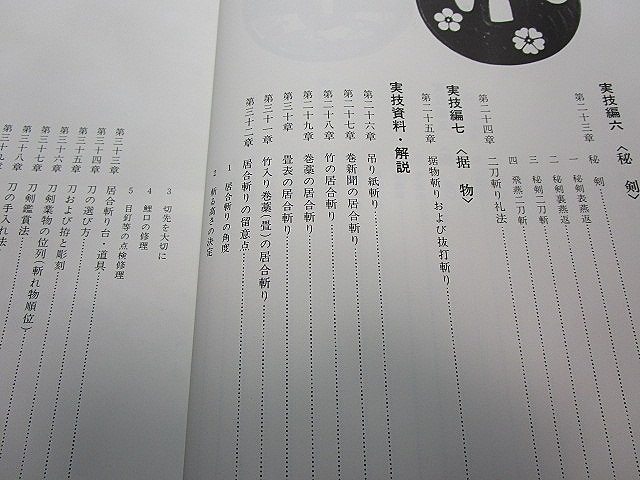 実技編六〈秘剣〉
第二十三章 秘剣
一 秘剣表燕返
二 秘剣裏燕返
三 秘剣二刀斬
四 飛燕二刀斬
第二十四章 二刀斬り礼法
実技編七〈据物〉
第二十五章 据物斬りおよび抜打斬り
実技資料・解説
第二十六章 吊り紙斬り
第二十七章 巻新聞の居合斬り
第二十八章 竹の居合斬り
第二十九章 巻藁の居合斬り
第三十章 畳表の居合斬り
第三十一章 竹入り巻藁(畳)の居合斬り
第三十二章 居合斬りの留意点
1 居合斬りの角度
2 斬る高さの決定
3 切先を大切に
4 鯉口の修理
5 目釘等の点検修理
第三十三章 居合斬り台・道具
第三十四章 刀の選び方
第三十五章 刀および拵と彫刻
第三十六章 刀剣業物の位列(斬れ物順位)
第三十七章 刀剣鑑賞法
第三十八章 刀の手入れ法
第三十九章